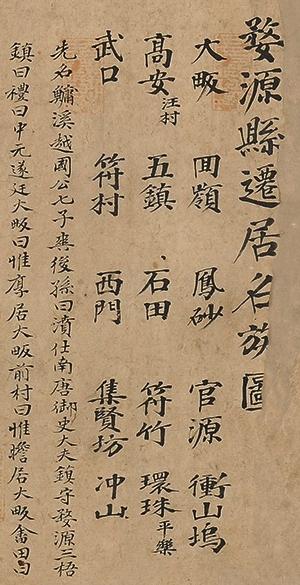 婺源縣遷居名族圖
大畈 回嶺 鳳砂 官源 衝山塢
高安 汪村 五鎮 石田 符竹 環珠 平樂
武口 符村 西門 集賢坊 冲山
先名鱅溪越國公七子爽後孫曰濆仕南唐御史大夫鎮守婺源三梧
鎮曰禮曰中元遂廷大畈曰惟厚居大畈前村曰惟瞻居大畈畬田曰